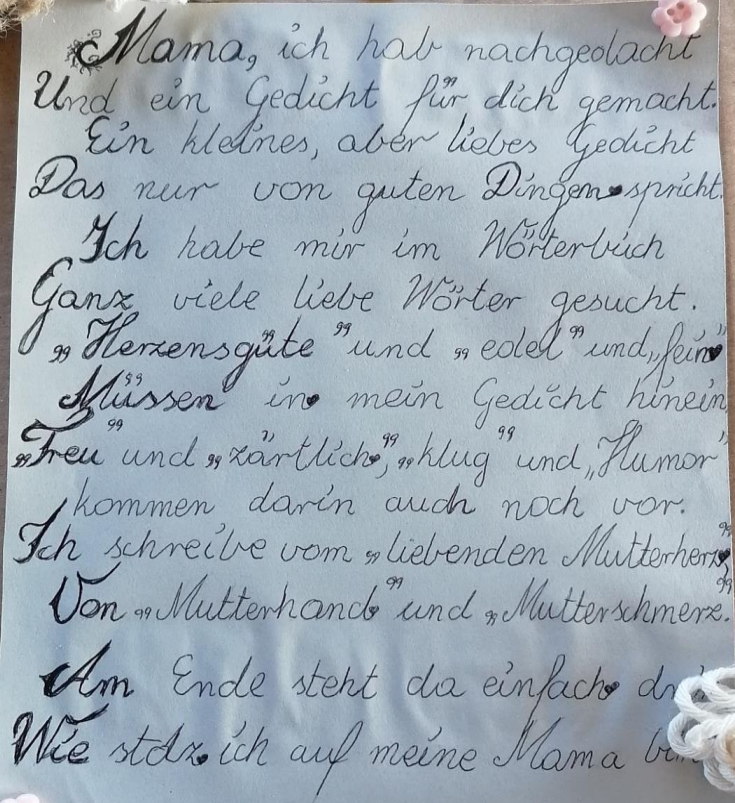 Mama, ich hab nachgedacht
Und ein Gedicht für dich gemacht.
Ein kleines, aber liebes Gedicht
Das nur von guten Dingen spricht.
Ich habe mir im Wörterbuch
Ganz viele liebe Wörter gesucht.
„Herzensgüte" und „edel" und „fein"
Müssen in mein Gedicht hinein
„Treu" und „zärtlich", „klug" und „Humor"
kommen darin auch noch vor.
Ich schreibe vom „liebenden Mutterherz"
Von „Mutterhand" und „Mutterschmerz".
Am Ende steht da einfach
Wie stolz ich auf meine Mama